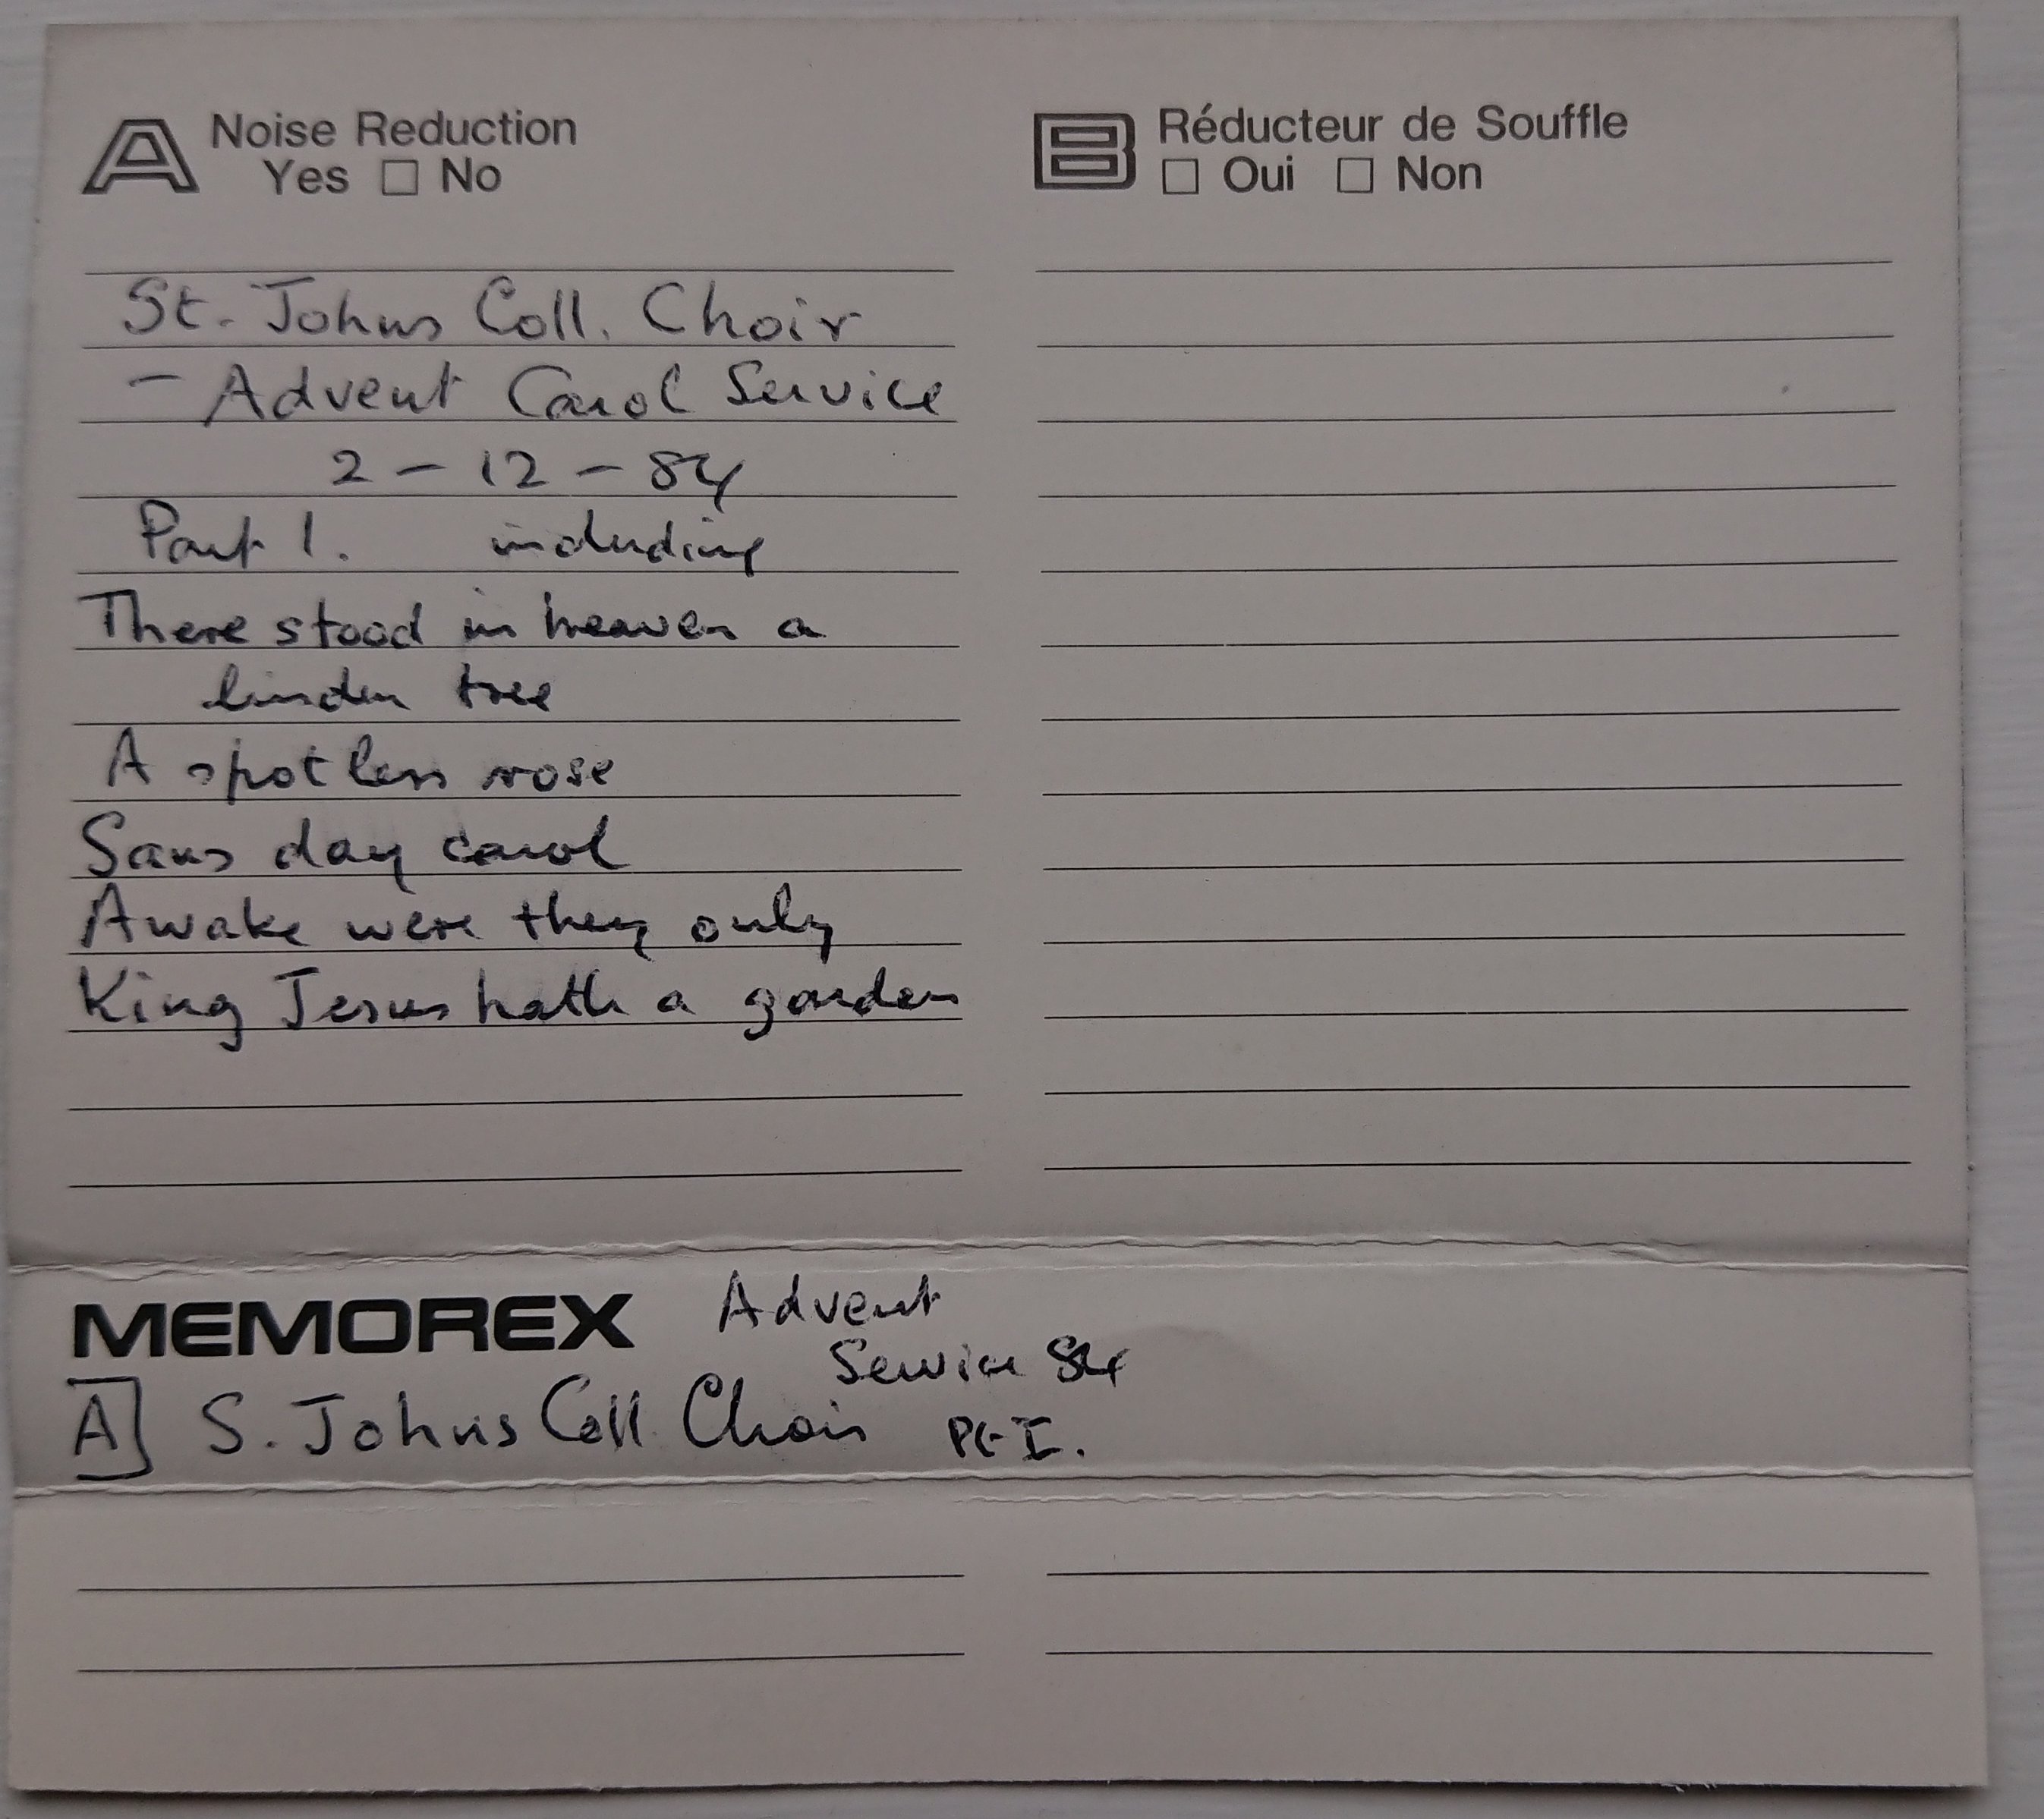 A Noise Reduction
Yes □ No
B Réducteur de Souffle
□ Oui □ Non
St. Johns Coll. Choir
- Advent Carol Service
2 - 12 - 84
Part 1. including
There stood in heaven a
linden tree
A spotless rose
Sans day carol
Awake were they only
King Jesus hath a garden
MEMOREX Advent
Service 84
A S. Johns Coll. Choir Pt I.